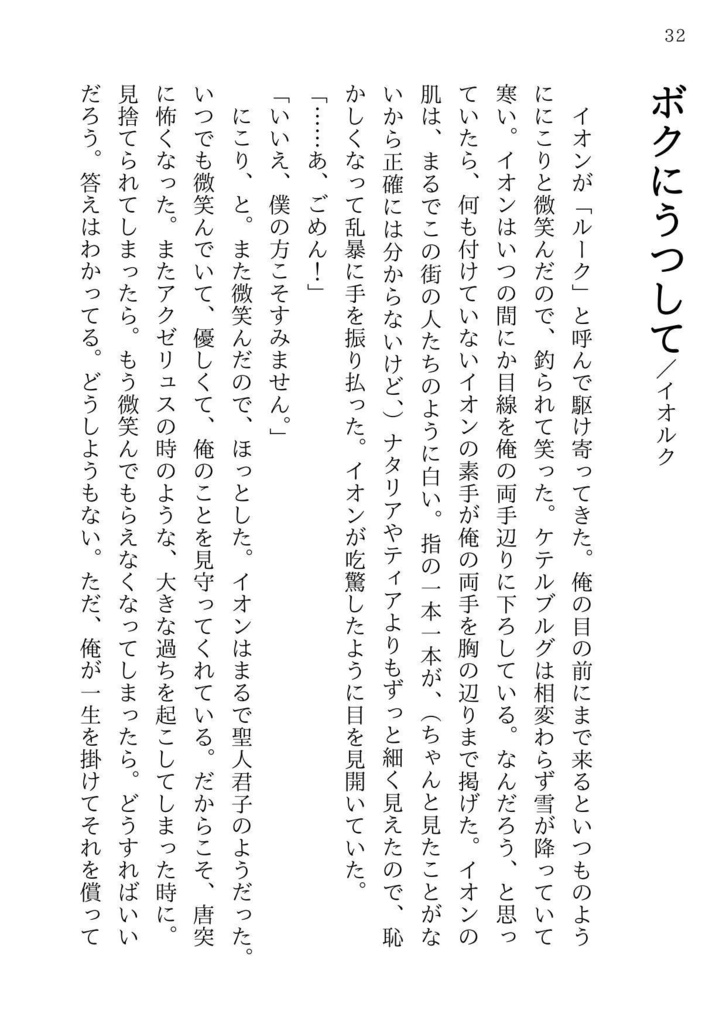 32
ボクにうつして／イオルク
　イオンが「ルーク」と呼んで駆け寄ってきた。俺の目の前にまで来るといつものよう
ににこりと微笑んだので、釣られて笑った。ケテルブルグは相変わらず雪が降っていて
寒い。イオンはいつの間にか目線を俺の両手辺りに下ろしている。なんだろう、と思っ
ていたら、何も付けていないイオンの素手が俺の両手を胸の辺りまで掲げた。イオンの
肌は、まるでこの街の人たちのように白い。指の一本一本が、（ちゃんと見たことがな
いから正確には分からないけど、）ナタリアやティアよりもずっと細く見えたので、恥
かしくなって乱暴に手を振り払った。イオンが吃驚したように目を見開いていた。
「……あ、ごめん！」
「いいえ、僕の方こそすみません。」
　にこり、と。また微笑んだので、ほっとした。イオンはまるで聖人君子のようだった。
いつでも微笑んでいて、優しくて、俺のことを見守ってくれている。だからこそ、唐突
に怖くなった。またアクゼリュスの時のような、大きな過ちを起こしてしまった時に。
見捨てられてしまったら。もう微笑んでもらえなくなってしまったら。どうすればいい
だろう。答えはわかってる。どうしようもない。ただ、俺が一生を掛けてそれを償って